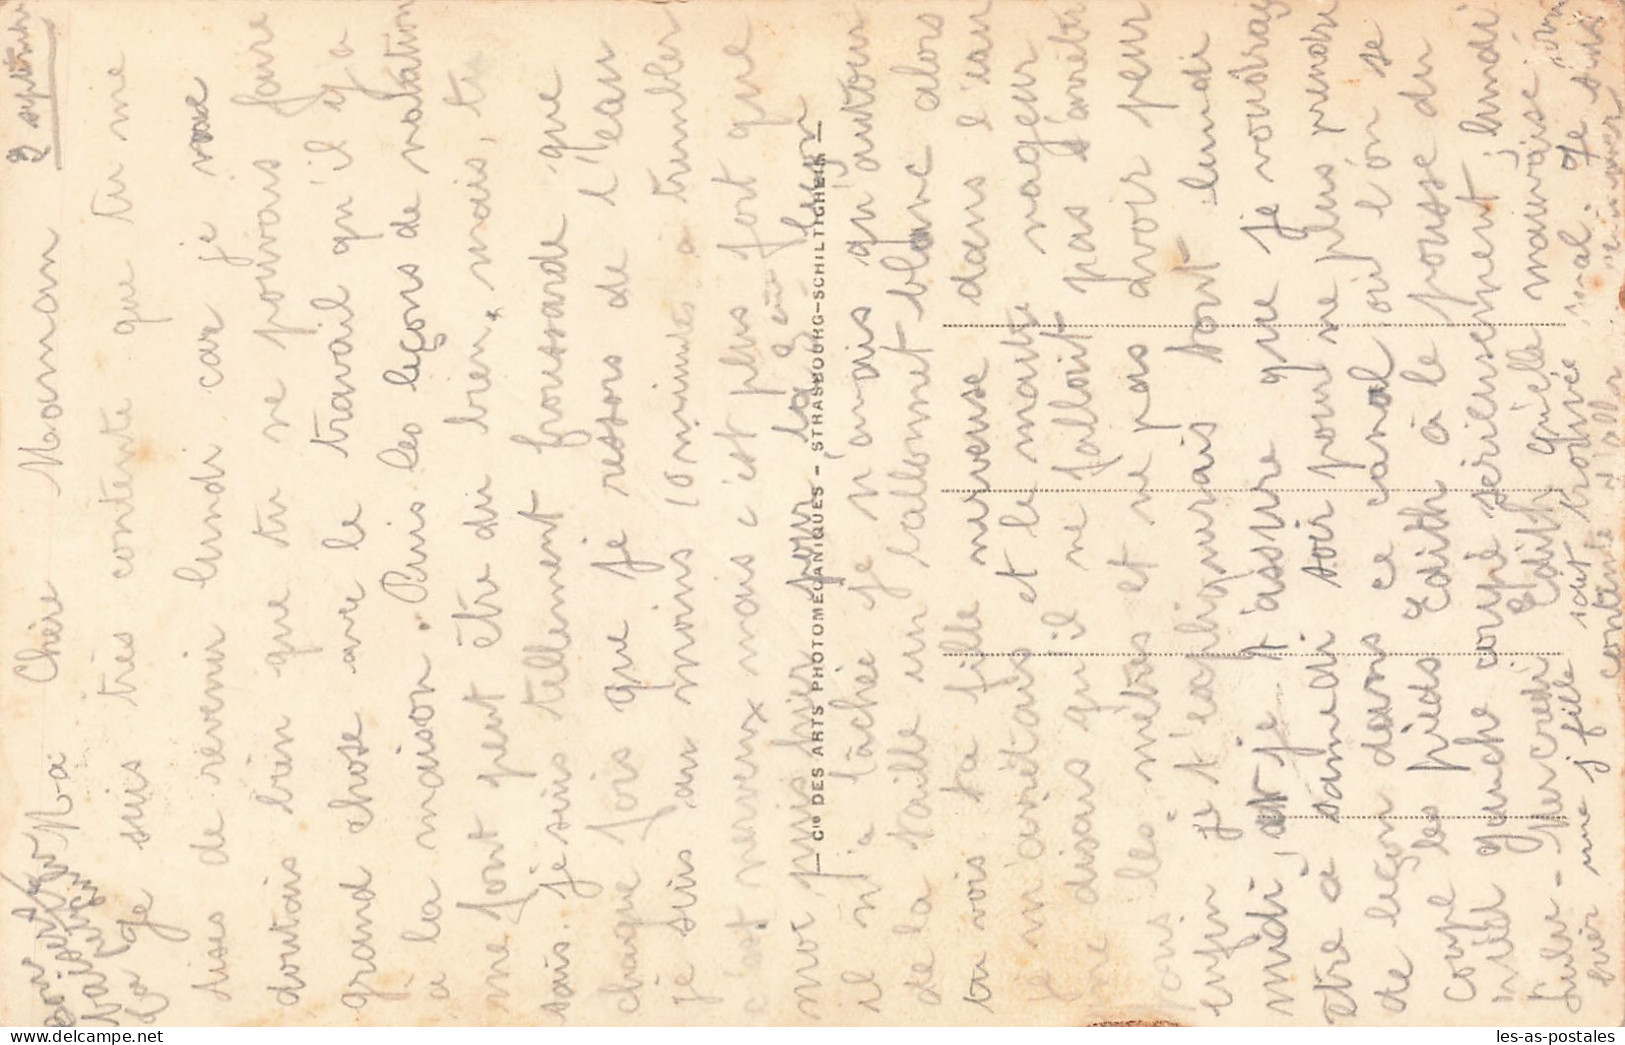 2 septembre
Ma Chère Maman
Je suis très contente que tu me
dises de revenir lundi car je
doutais bien que tu ne pouvais faire
grand chose avec le travail qu'il y a
à la maison. Puis les leçons de natation
me font peut être du bien, mais, tu
sais. je suis tellement froussarde que
chaque fois que je ressors de l'eau
je suis au moins 10 minutes à trembler
c'est nerveux mais c'est plus fort que
moi puis hier pour la 3ème leçon
il m'a lâchée je n'avais qu'autour
de la taille un caleconnet blanc alors
tu vois ta fille nerveuse dans l'eau
je m'arrêtais et le maitre nageur
me disais qu'il ne falloit pas s'arrêter
les mètres et ne pas avoir peur
enfin je t'expliquerais tout lundi
midi, et je t'assure que je voudrais
etre à samedi soir pour ne plus prendre
de leçon dans ce canal où l'on se
coupe les pieds Edith à le pousse du
pied gauche coupé serieusement, lundi
Mercredi Edith qu'elle mauvaise
hier une jeune fille s'est trouvée mal. Je suis
contente d'aller
Bons baisers
— Cie DES ARTS PHOTOMECANIQUES – STRASBOURG-SCHILTIGHEIM —
les-as-postales